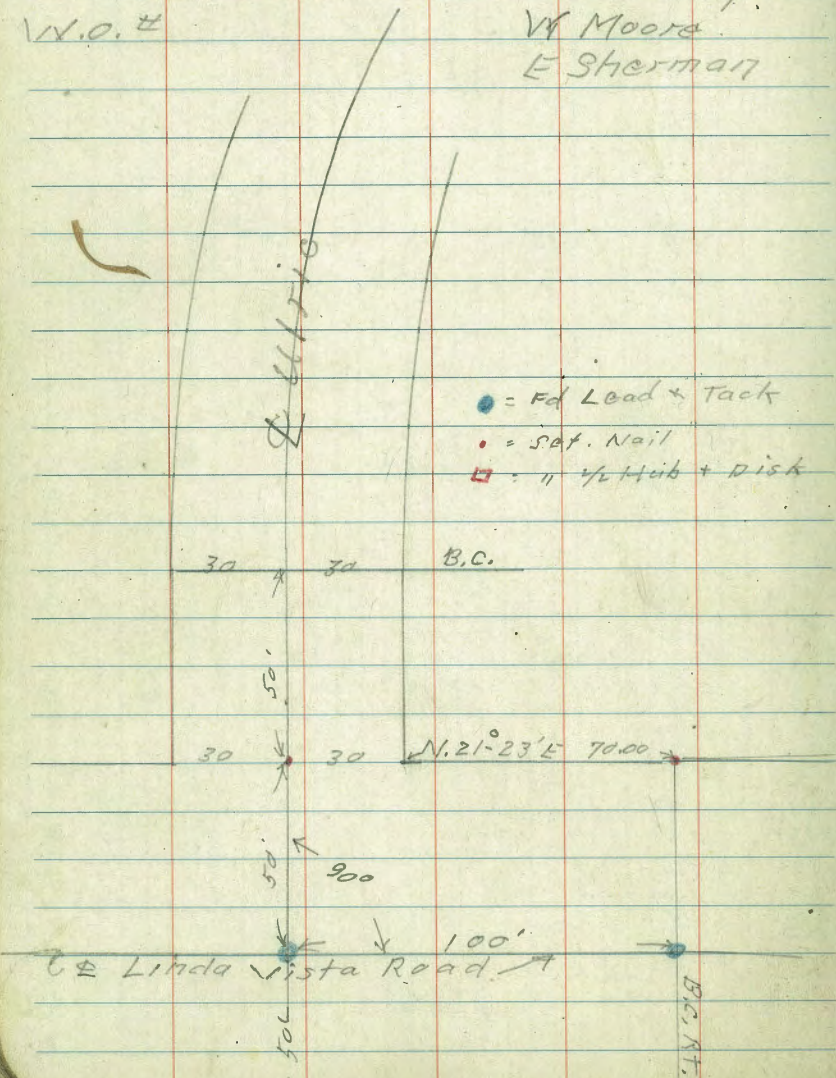 W.O. #
W Moore
E Sherman
℄ Ulric
= Fd Lead & Tack
= Set. Nail
= " 1/2 Hub + Disk
30 30 B.C.
50'
30 30 N.21°-23'E 70.00
50'
900
100'
℄ Linda Vista Road
50
B.C. Rt.